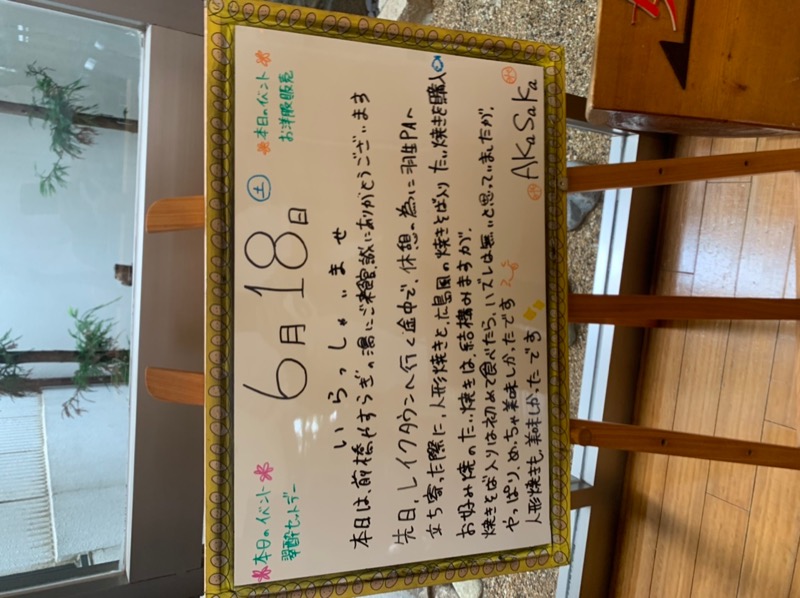 本日のイベント
翠酔セットデー
6月18日
土
本日のイベント
お洋服販売
いらっしゃいませ
本日は、前橋やすらぎの湯にご来館、誠にありがとうございます
先日、レイクタウンへ行く途中で、休憩の為に羽生PAへ
立ち寄った際に、人形焼きと、広島風の焼きそば入りたい焼きを購入
お好み焼のたい焼きは、結構みますが、
焼きそば入りは初めて食べたら、ハズレは無いと思っていましたが、
やっぱり、めっちゃ美味しかったです
人形焼きも、美味しかったです
AKaSaKa